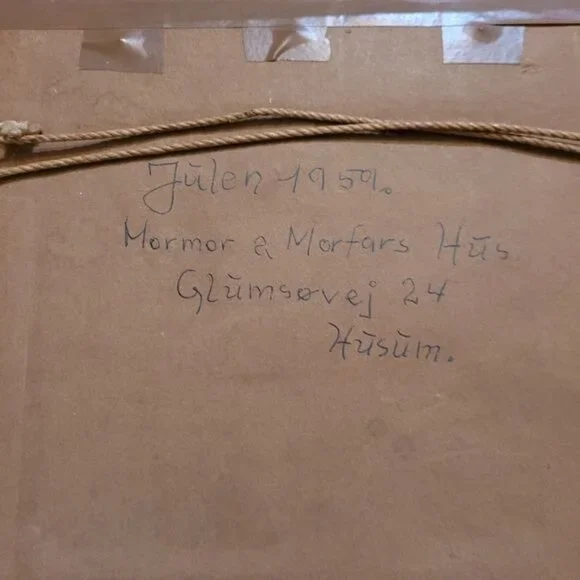 Jūlen 1959.
Mormor & Morfars Hūs
Glūmsøvej 24
Hūsūm.